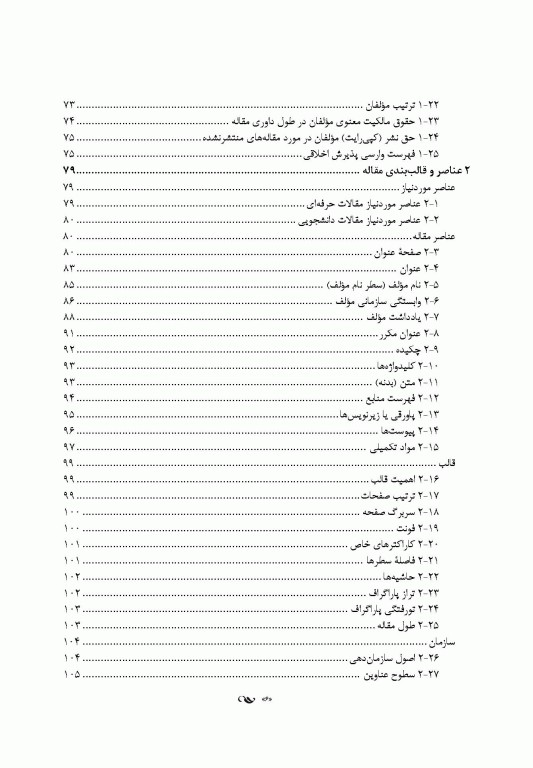 ۱-۲۲ ترتیب مؤلفان ........ ۷۳
۱-۲۳ حقوق مالکیت معنوی مؤلفان در طول داوری مقاله ........ ۷۴
۱-۲۴ حق نشر (کپی‌رایت) مؤلفان در مورد مقاله‌های منتشرنشده ........ ۷۵
۱-۲۵ فهرست وارسی پذیرش اخلاقی ........ ۷۵
۲ عناصر و قالب‌بندی مقاله ........ ۷۹
عناصر موردنیاز ........ ۷۹
۲-۱ عناصر موردنیاز مقالات حرفه‌ای ........ ۷۹
۲-۲ عناصر موردنیاز مقالات دانشجویی ........ ۸۰
عناصر مقاله ........ ۸۰
۲-۳ صفحهٔ عنوان ........ ۸۰
۲-۴ عنوان ........ ۸۳
۲-۵ نام مؤلف (سطر نام مؤلف) ........ ۸۵
۲-۶ وابستگی سازمانی مؤلف ........ ۸۶
۲-۷ یادداشت مؤلف ........ ۸۸
۲-۸ عنوان مکرر ........ ۹۱
۲-۹ چکیده ........ ۹۲
۲-۱۰ کلیدواژه‌ها ........ ۹۳
۲-۱۱ متن (بدنه) ........ ۹۳
۲-۱۲ فهرست منابع ........ ۹۴
۲-۱۳ پاورقی یا زیرنویس‌ها ........ ۹۵
۲-۱۴ پیوست‌ها ........ ۹۶
۲-۱۵ مواد تکمیلی ........ ۹۷
قالب ........ ۹۹
۲-۱۶ اهمیت قالب ........ ۹۹
۲-۱۷ ترتیب صفحات ........ ۹۹
۲-۱۸ سربرگ صفحه ........ ۱۰۰
۲-۱۹ فونت ........ ۱۰۰
۲-۲۰ کاراکترهای خاص ........ ۱۰۱
۲-۲۱ فاصلهٔ سطرها ........ ۱۰۱
۲-۲۲ حاشیه‌ها ........ ۱۰۲
۲-۲۳ تراز پاراگراف ........ ۱۰۲
۲-۲۴ تورفتگی پاراگراف ........ ۱۰۳
۲-۲۵ طول مقاله ........ ۱۰۳
سازمان ........ ۱۰۴
۲-۲۶ اصول سازمان‌دهی ........ ۱۰۴
۲-۲۷ سطوح عناوین ........ ۱۰۵